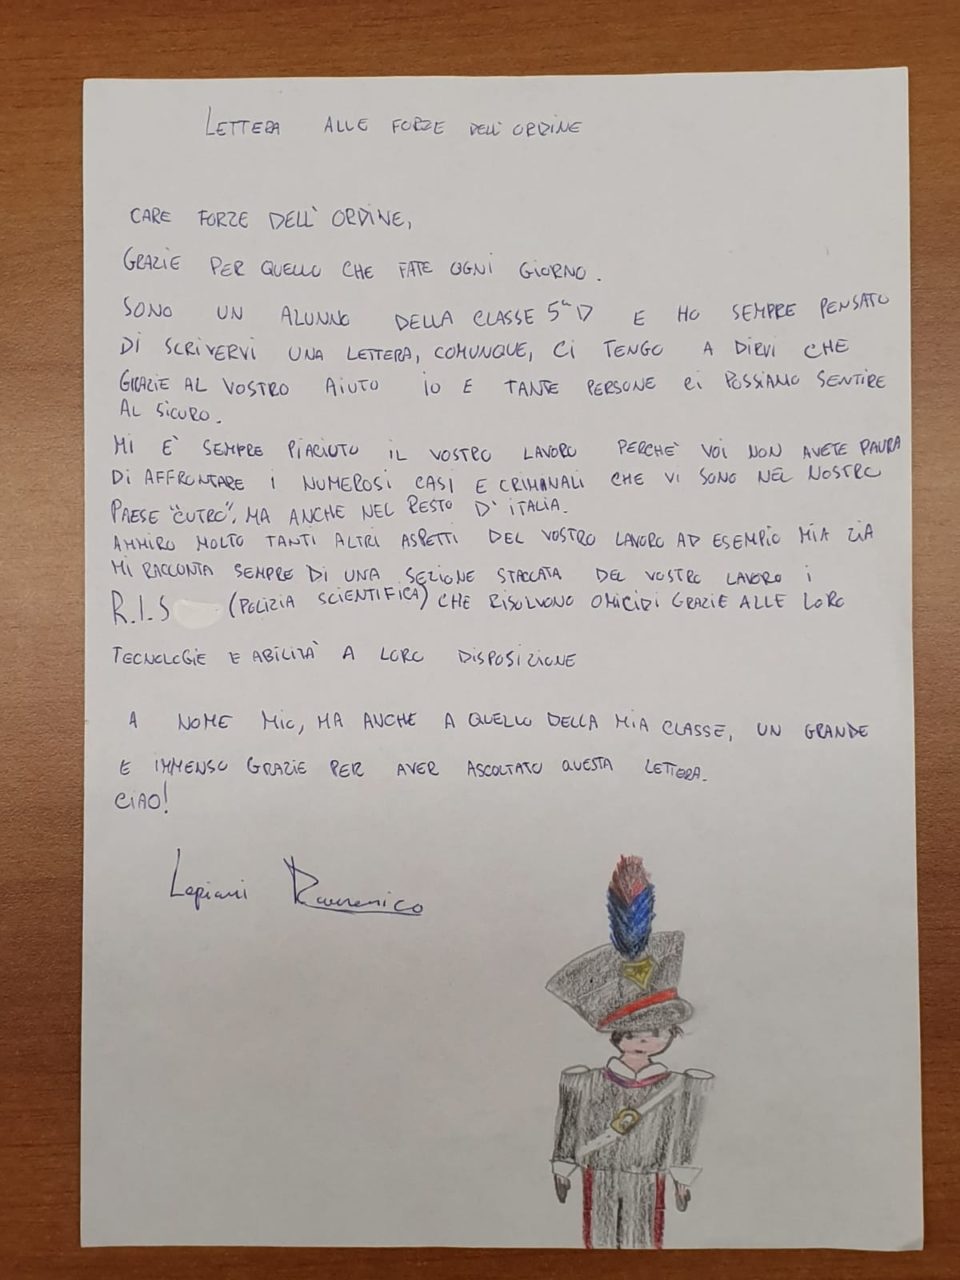 LETTERA ALLE FORZE DELL'ORDINE
CARE FORZE DELL'ORDINE,
GRAZIE PER QUELLO CHE FATE OGNI GIORNO.
SONO UN ALUNNO DELLA CLASSE 5ª D E HO SEMPRE PENSATO
DI SCRIVERVI UNA LETTERA, COMUNQUE, CI TENGO A DIRVI CHE
GRAZIE AL VOSTRO AIUTO IO E TANTE PERSONE CI POSSIAMO SENTIRE
AL SICURO.
MI È SEMPRE PIACIUTO IL VOSTRO LAVORO PERCHÈ VOI NON AVETE PAURA
DI AFFRONTARE I NUMEROSI CASI E CRIMINALI CHE VI SONO NEL NOSTRO
PAESE "CUTRO", MA ANCHE NEL RESTO D'ITALIA.
AMMIRO MOLTO TANTI ALTRI ASPETTI DEL VOSTRO LAVORO AD ESEMPIO MIA ZIA
MI RACCONTA SEMPRE DI UNA SEZIONE STACCATA DEL VOSTRO LAVORO I
R.I.S (POLIZIA SCIENTIFICA) CHE RISOLVONO OMICIDI GRAZIE ALLE LORO
TECNOLOGIE E ABILITÀ A LORO DISPOSIZIONE
A NOME MIO, MA ANCHE A QUELLO DELLA MIA CLASSE, UN GRANDE
E IMMENSO GRAZIE PER AVER ASCOLTATO QUESTA LETTERA.
CIAO!
Domenico